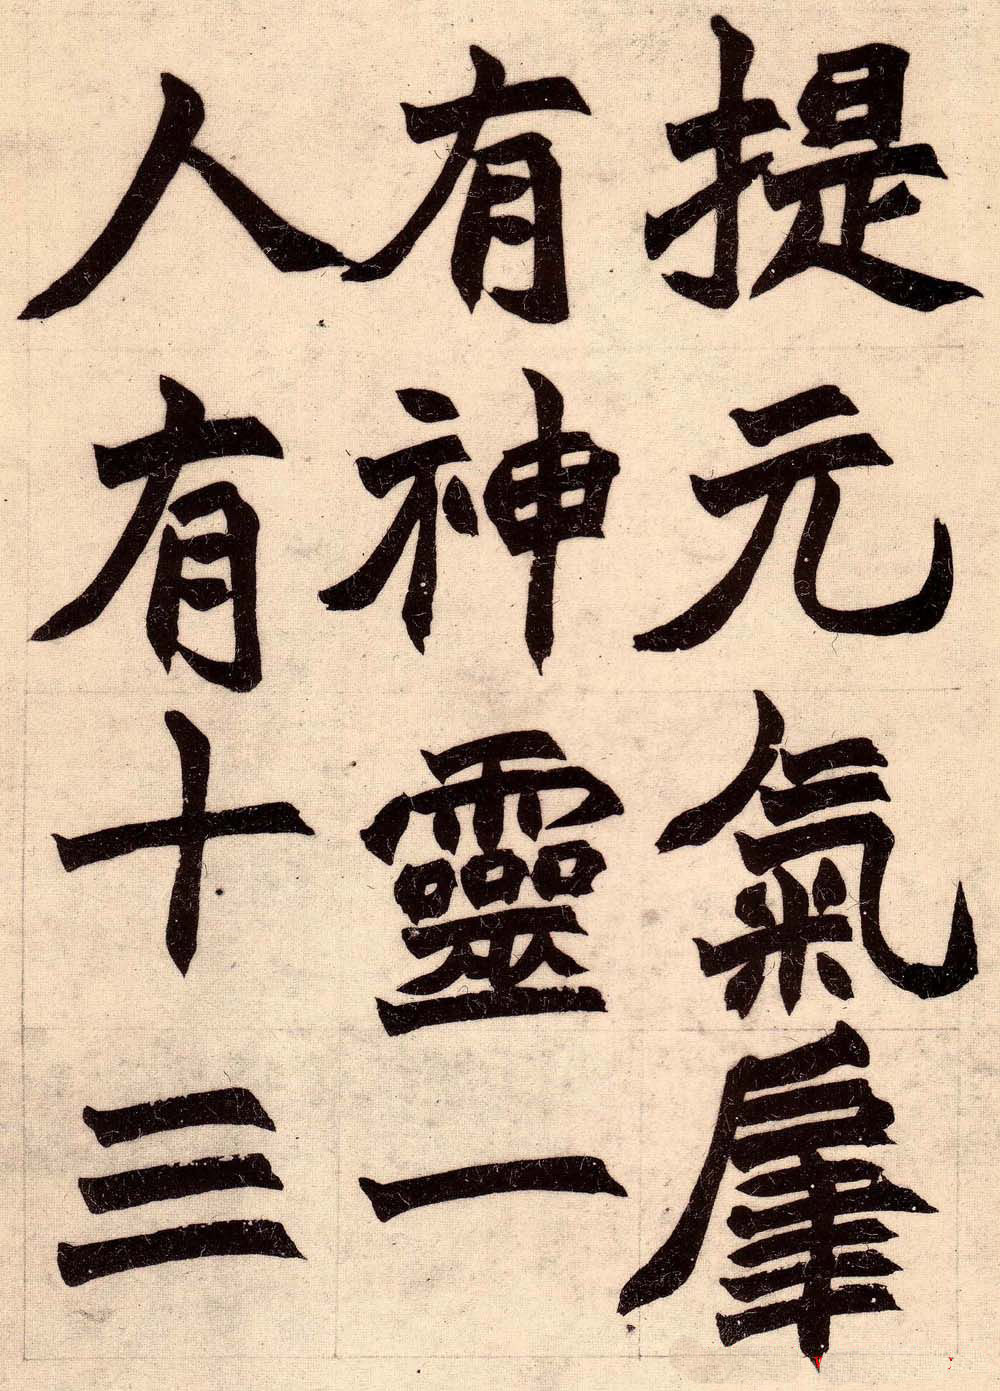 提元氣肁
有神靈一
人有十三